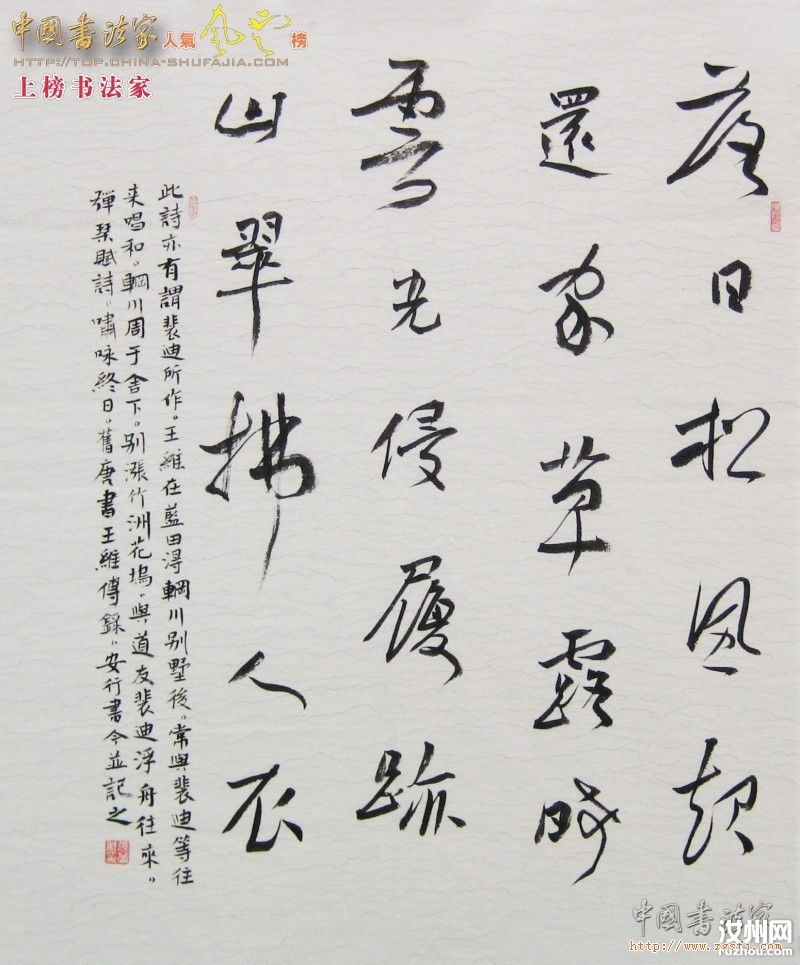 中國书法家人氣风云榜
HTTP://TOP.CHINA-SHUFAJIA.COM
上榜书法家
落日松風起
還家草露晞
雲光侵履跡
山翠拂人衣
此詩亦有謂裴迪所作。王維在藍田得輞川别墅後。常與裴迪等往
来唱和。輞川周于舍下。别漲竹洲花塢。與道友裴迪浮舟往來。
彈琴賦詩。嘯咏終日。舊唐書王維傳錄。安行書今並記之
中國书法家
http://www.zgsfj.com
汝州网
ruzhou.com